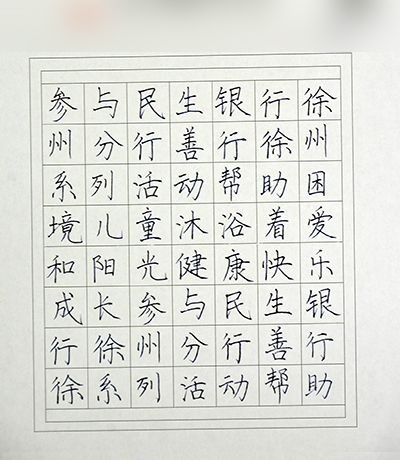 参与民生银行徐
州分行善行徐州
系列活动帮助困
境儿童沐浴着爱
和阳光健康快乐
成长参与民生银
行徐州分行善行
徐系列活动帮助